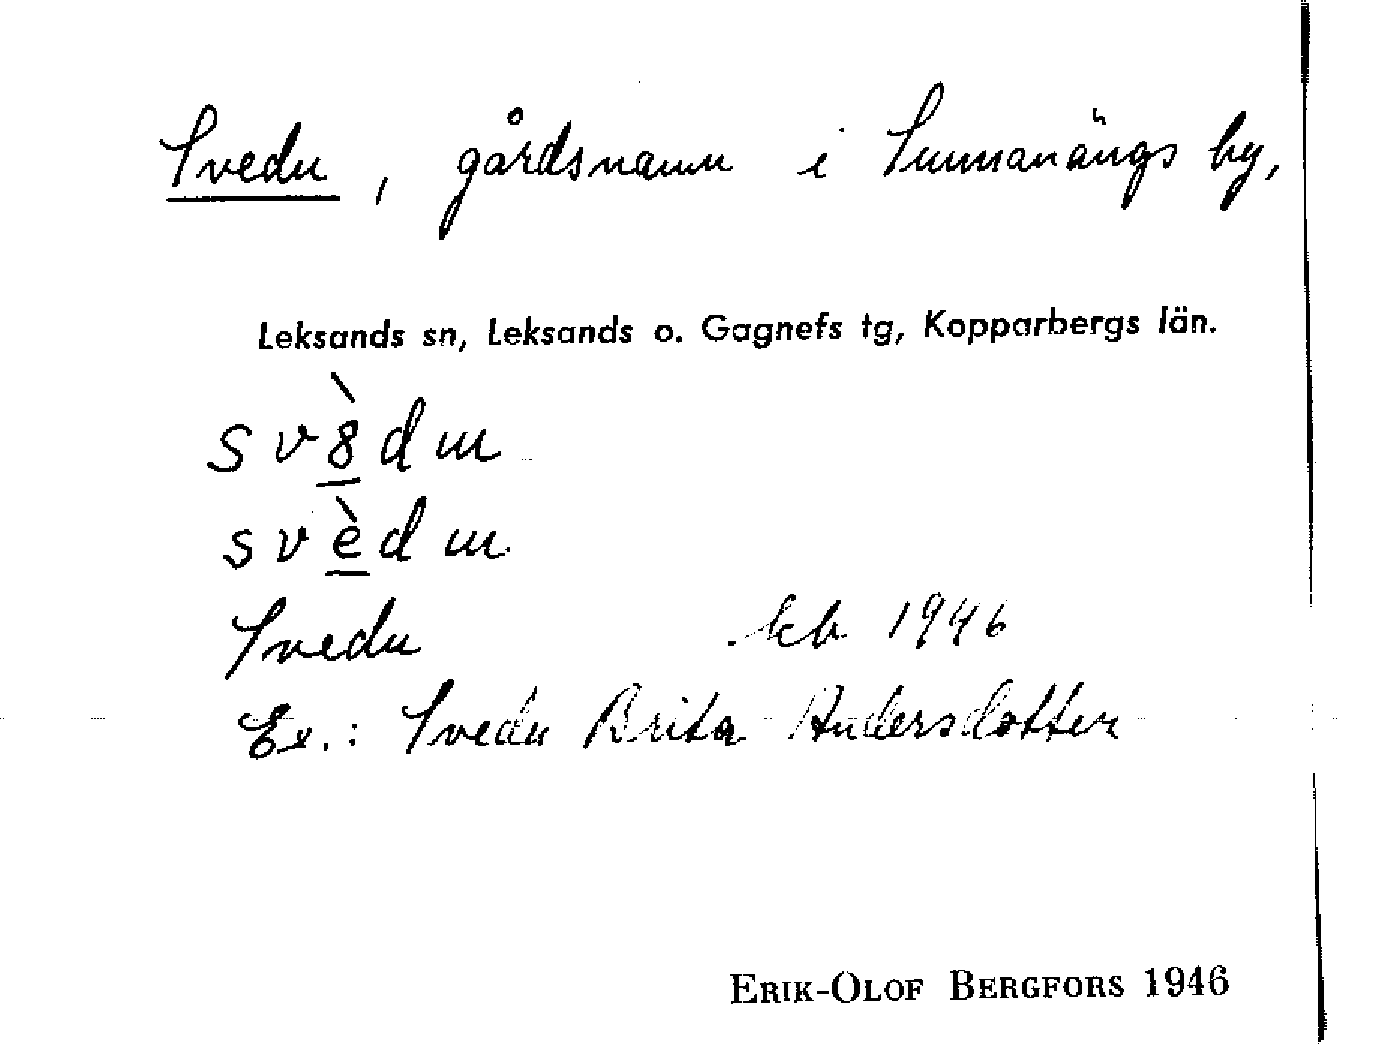 Svedu, gårdsnamn i Sunnanängs by,
Leksands sn, Leksands o. Gagnefs tg, Kopparbergs län.
Svedu kb 1946
Ex.: Svedu Brita Andersdotter
ERIK-OLOF BERGFORS 1946